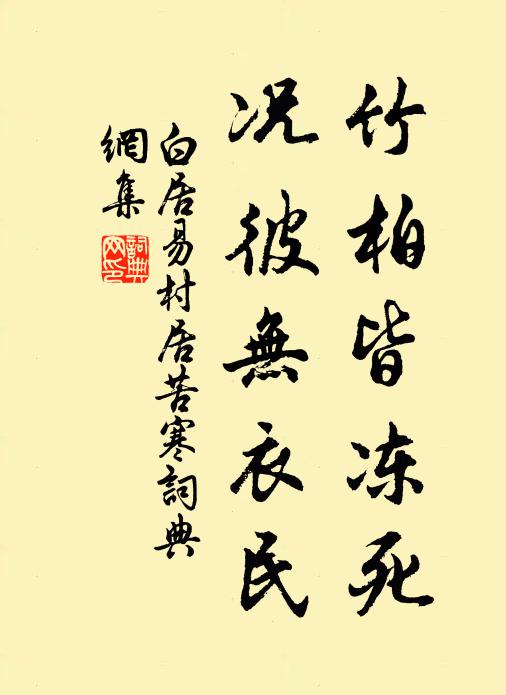 竹柏皆冻死
况彼無衣民
白居易村居苦寒詞典
網集
詞典
网印